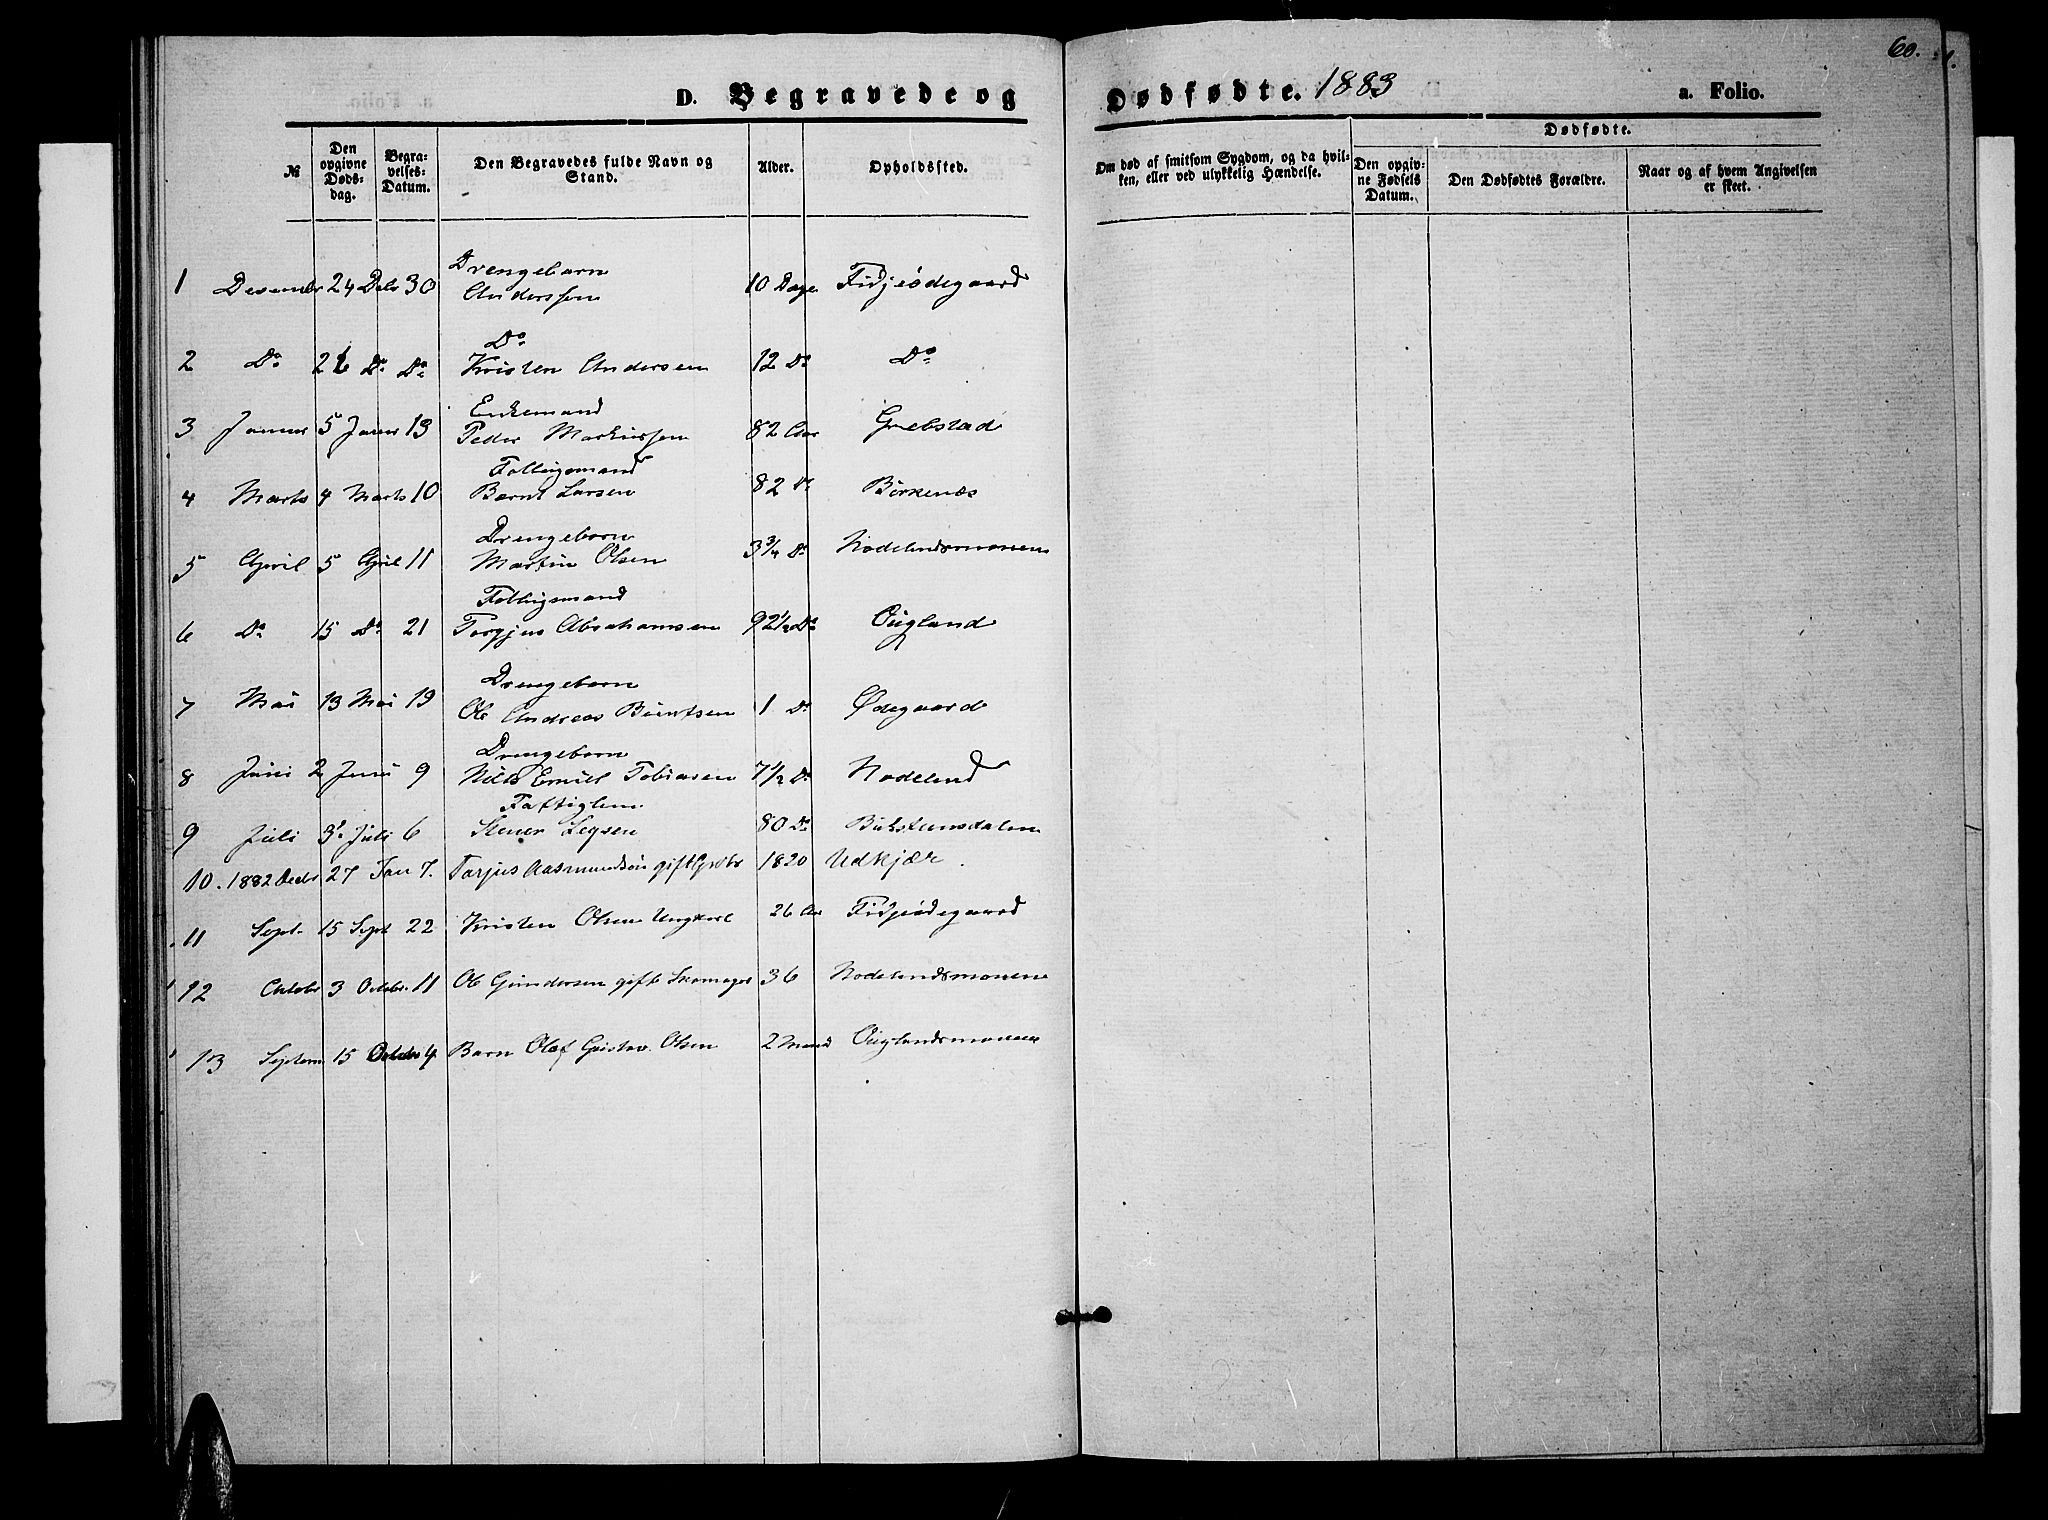 60.
D. Begravede og Dødfødte. 1883 a. Folio.
№
Den opgivne Dødsdag.
Begravelses-Datum.
Den Begravedes fulde Navn og Stand.
Alder.
Opholdssted.
Om død af smitsom Sygdom, og da hvilken, eller ved ulykkelig Hændelse.
Dødfødte.
Den opgivne Fødsels Datum.
Den Dødfødtes Forældre.
Naar og af hvem Angivelsen er skeet.
Drengebarn
1 Desembr 24 Debr 30 Anderssen 10 Dage Fidjeødegaard
Do
2 Do 26 Do Do Kristen Andersen 12 Do Do
Enkemand
3 Januar 5 Janr 13 Peder Markussen 82 Aar Grebstad
Fattigmand
4 Marts 4 Marts 10 Bernt Larsen 82 Do Birkenæs
Drengebarn
5 April 5 April 11 Martin Olsen 3 3/4 Do Nodelandsmonen
Fattigmand
6 Do 15 Do 21 Torgjus Abrahamsen 92 1/2 Do Øugland
Drengebarn
7 Mai 13 Mai 19 Ole Andreas Berntsen 1 Do Ødegaard
Drengebarn
8 Juni 2 Juni 9 Nils Emil Tobiasen 7 1/2 Do Nodeland
Fattiglem
9 Juli Juli 6 80 Do
10. 1882 Decbr 27 Jan 7. Tarjus Aasmundsen gift 1820 Udkjær
11 Sept. 15 Sept 22 Kristen Olsen Ungkarl 26 Aar Fidjeødegaard
12 Octobr 3 Octobr. 11 Ole Gundersen gift Skomager 36 Nodelandsmonen
13 Septem 15 Octobr 4 Barn Olaf Gustav Olsen 2 Maand Øuglandsmonen